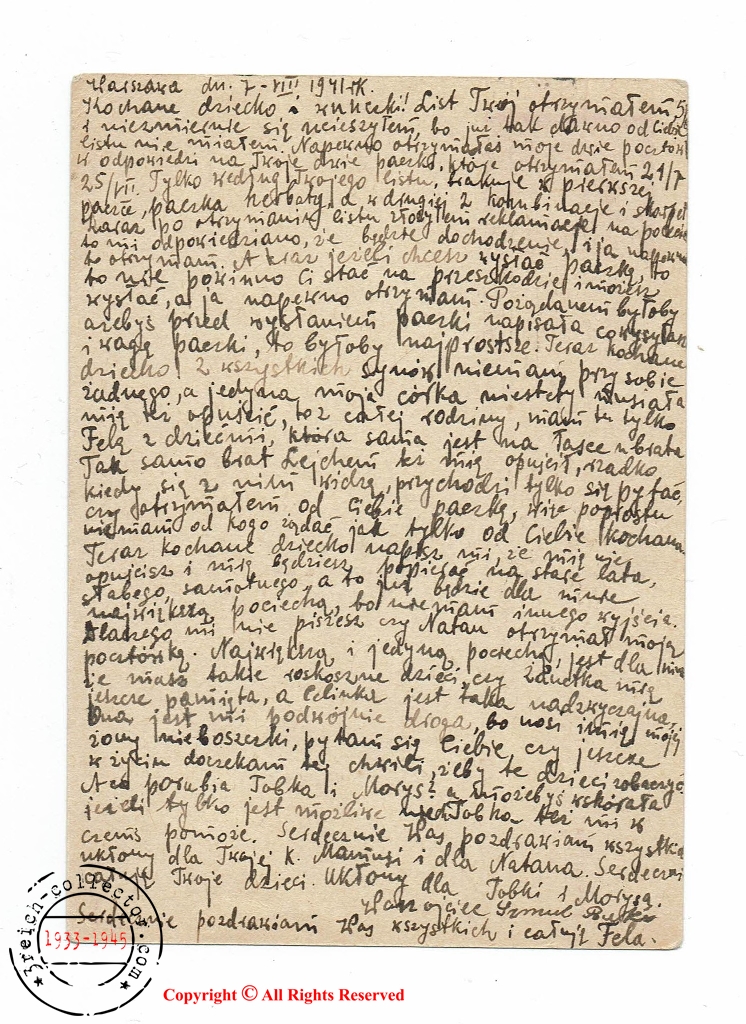 Warszawa dn. 7-VIII 1941 rK.
Kochane dziecko i wnuczki! List Twój otrzymałem 5/
i niezmiernie się ucieszyłem, bo już tak dawno od Ciebie
listu nie miałem. Napewno otrzymałaś moje dwie pocztówki
w odpowiedzi na Twoje dwie paczki, które otrzymałem 21/7
25/VII. Tylko według Twojego listu, brakuje w pierwszej
paczce, paczka herbaty, a w drugiej 2 kombinacje i skarpet
zaraz po otrzymaniu listu złożyłem reklamację na poczcie
to mi odpowiedziano, że będzie dochodzenie, i ja napewno
to otrzymam. A teraz jeżeli chcesz wysłać paczkę, to
to nie powinno Ci stać na przeszkodzie i możesz
wysłać, a ja napewno otrzymam. Pożądanem byłoby
ażebyś przed wysłaniem paczki napisała co wysyłasz
i wagę paczki, to byłoby najprostsze. Teraz kochane
dziecko z wszystkich synów niemam przy sobie
żadnego, a jedyna moja córka niestety musiała
mię też opuścić, to z całej rodziny, mam tu tylko
Felą z dziećmi, która sama jest na łasce u brata
Tak samo brat Lejchem też mię opuścił, rzadko
kiedy się z nim widzę, przychodzi tylko się pytać,
czy otrzymałem od Ciebie paczkę, więc poprostu
niemam od kogo żądać jak tylko od Ciebie kochana.
Teraz kochane dziecko napisz mi, że mię nie
opuścisz i mię będziesz popierać na stare lata,
słabego, samotnego, a to już będzie dla mnie
największą pociechą, bo niemam innego wyjścia.
Dlaczego mi nie piszesz czy Natan otrzymał moją
pocztówkę. Największą i jedyną pociechą, jest dla mnie
że masz takie roskoszne dzieci, czy Żanetka mię
jeszcze pamięta, a Celinka jest taka nadzwyczajna,
Ona jest mi podwójnie droga, bo nosi imię mojej
żony nieboszczki, pytam się Ciebie, czy jeszcze
w życiu doczekam tej chwili, żeby te dzieci zobaczyć
A co porabia Tobka i Moryś, a możebyś wskórała
jeżeli tylko jest możliwe Tobka też mi w
czemś pomoże. Serdecznie Was pozdrawiam wszystkich
ukłony dla Twojej K. Mamusi i dla Natana. Serdecznie
całuję Twoje dzieci. Ukłony dla Tobki i Morysa.
Wasz ojciec Szmul
Serdecznie pozdrawiam Was wszystkich i całuję Fela.
3reich-collector.com
1933-1945
Copyright © All Rights Reserved